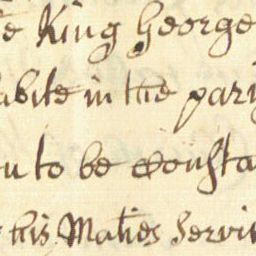 e King George
abite in the pari
u to be Consta
his Maties Servi